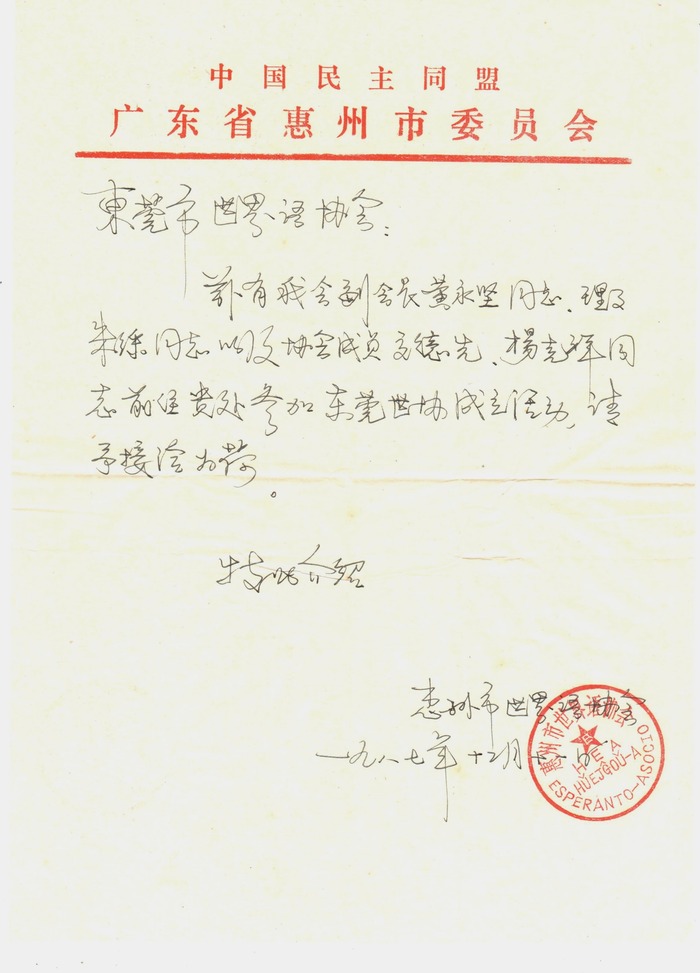 中国民主同盟
广东省惠州市委员会
東莞市世界语协会:
兹有我会副会长黄永坚同志、理事
朱练同志以及协会成员文德先、楊克祥同
志前往贵处参加东莞世协成立活动,请
予接洽为荷。
特此介绍
惠州市世界语协会
一九八七年十二月
惠州市世界语协会
H E A
HUEJGOU-A
ESPERANTO-ASOCIO